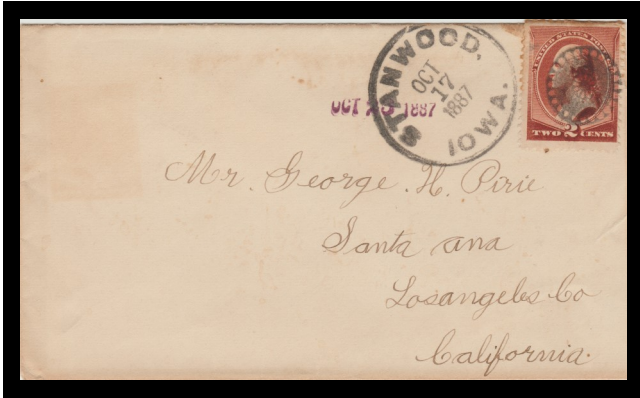 STANWOOD,
OCT
17
1887
IOWA.
OCT 1887
UNITED STATES POST
TWO 2 CENTS
Mr. George. H. Pirie
Santa ana
Losangeles Co
California.